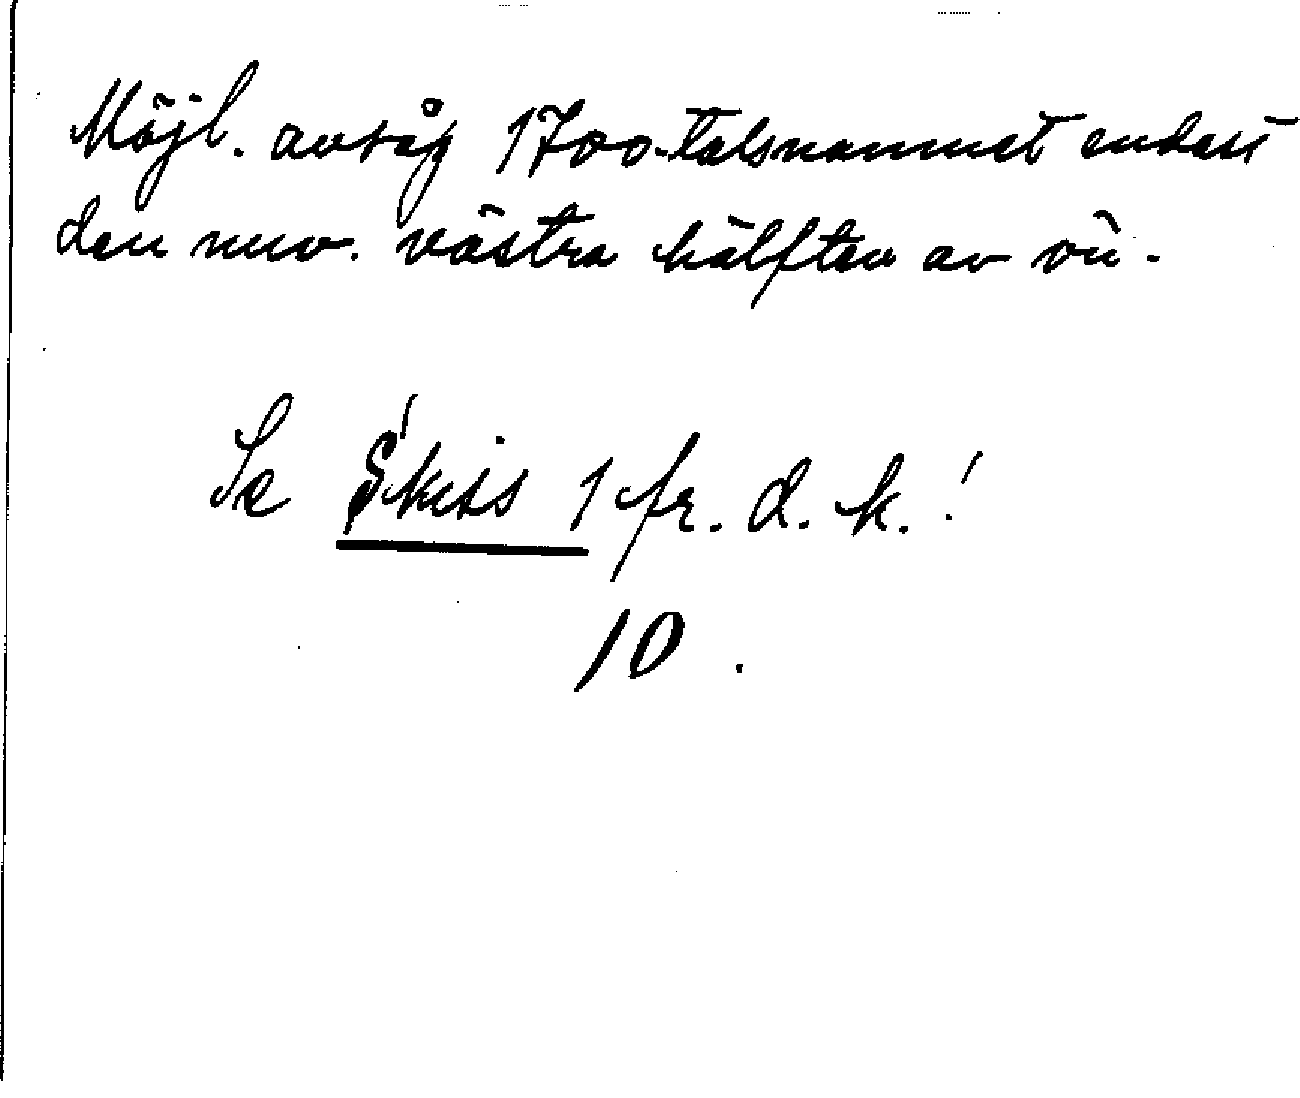 Möjl. avsåg 1700-talsnamnet endast
den nuv. västra hälften av vü.
Se Skiss 1 fr. d. k.!
10.